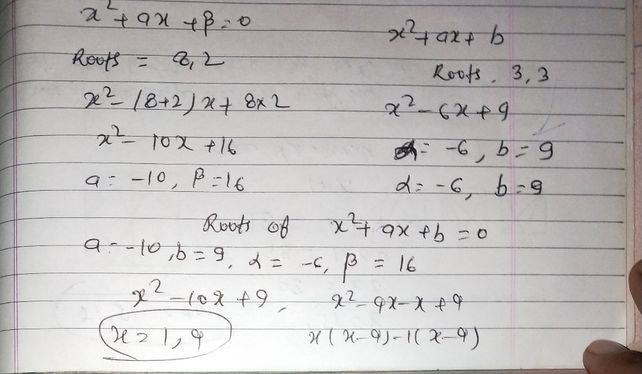 x² + ax + β = 0
Roots = 8, 2
x² - (8+2)x + 8×2
x² - 10x + 16
a = -10, β = 16
x² + ax + b
Roots. 3, 3
x² - 6x + 9
= -6, b = 9
α = -6, b = 9
Roots of x² + ax + b = 0
a = -10, b = 9, α = -6, β = 16
x² - 10x + 9, x² - 9x - x + 9
x = 1, 9 x(x-9) - 1(x-9)